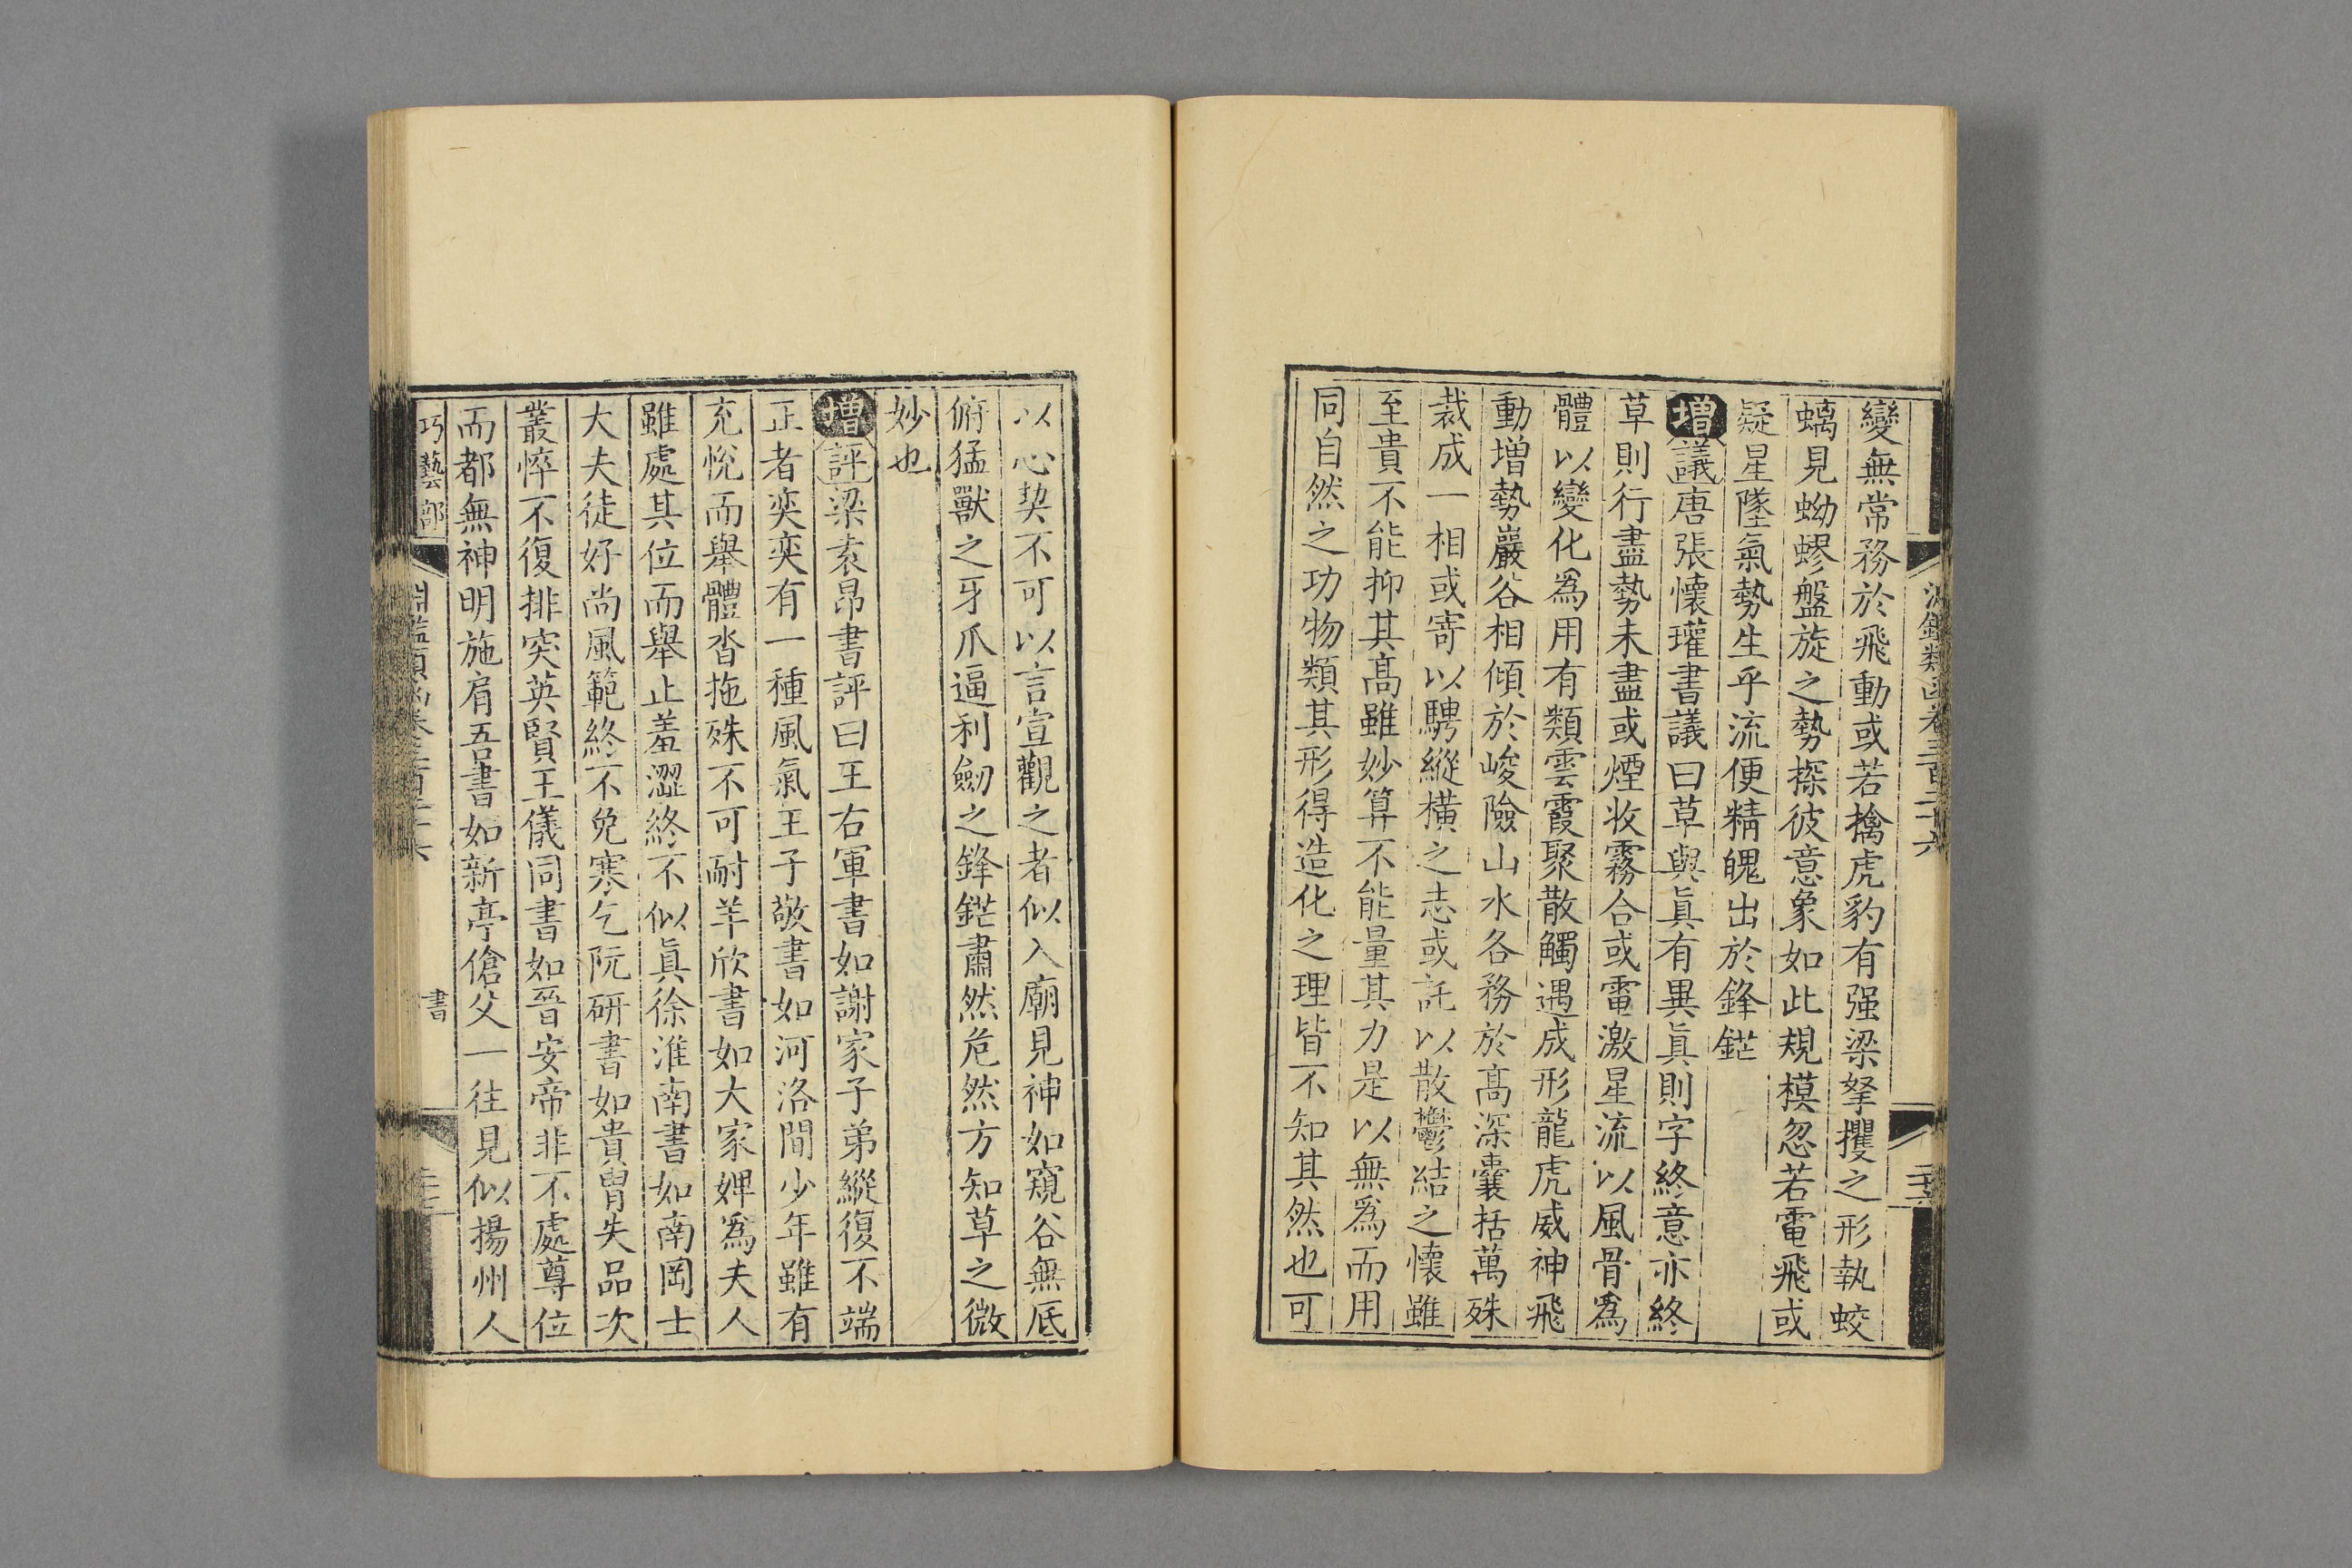 變無常務於飛動或若擒虎豹有强梁拏攫之形執蛟
螭見蚴蟉盤旋之勢探彼意象如此規模忽若電飛或
疑星墜氣勢生乎流便精魄出於鋒鋩
增議唐張懷瓘書議曰草與眞有異眞則字終意亦終
草則行盡勢未盡或煙收霧合或電激星流以風骨爲
體以變化爲用有類雲霞聚散觸遇成形龍虎威神飛
動增勢巖谷相傾於峻險山水各務於髙深囊括萬殊
裁成一相或寄以騁縱橫之志或託以散鬱結之懷雖
至貴不能抑其髙雖妙算不能量其力是以無爲而用
同自然之功物類其形得造化之理皆不知其然也可
以心契不可以言宣觀之者似入廟見神如窺谷無底
俯猛獸之牙爪逼利劒之鋒鋩肅然危然方知草之微
妙也
增評梁袁昂書評曰王右軍書如謝家子弟縱復不端
正者奕奕有一種風氣王子敬書如河洛間少年雖有
充悅而舉體沓拖殊不可耐羊欣書如大家婢爲夫人
雖處其位而舉止羞澀終不似眞徐淮南書如南岡士
大夫徒好尚風範終不免寒乞阮研書如貴胄失品次
叢悴不復排突英賢王儀同書如晉安帝非不處尊位
而都無神明施肩吾書如新亭傖父一往見似揚州人
巧藝部
書